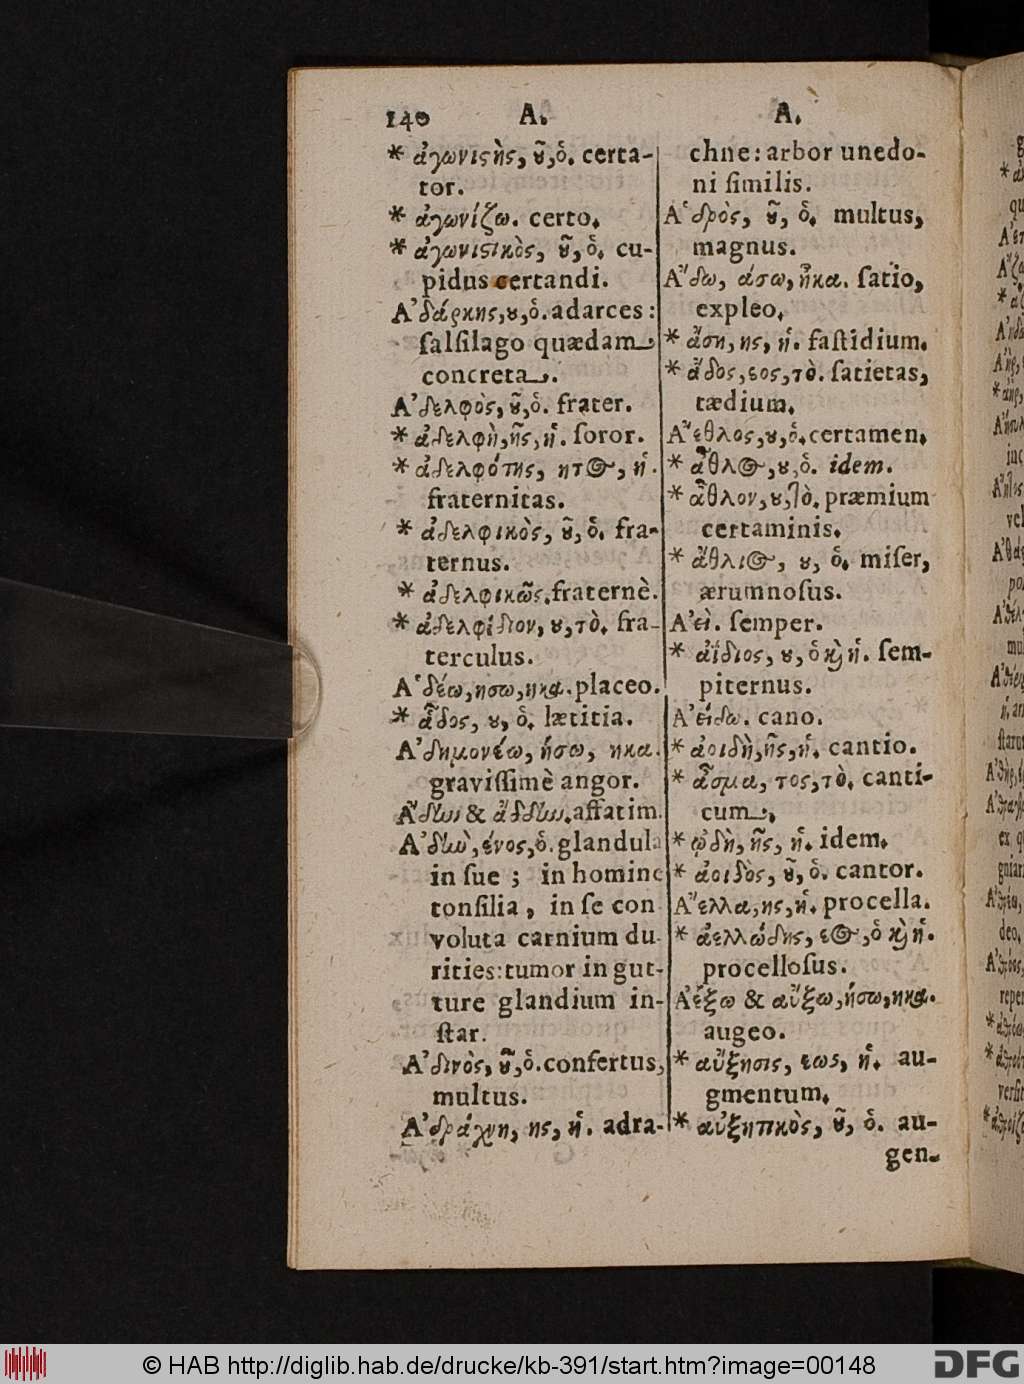 140 A. A.
* ἀγωνιϛὴς, ȣ͂, ὁ. certa-
tor.
* ἀγωνίζω. certo.
* ἀγωνιϛικὸς, ȣ͂, ὁ. cu-
pidus certandi.
Ἀδάρκης, ȣ, ὁ. adarces:
ſalſilago quædam
concreta.
Ἀδελφὸς, ȣ͂, ὁ. frater.
* ἀδελφὴ, ῆς, ἡ. ſoror.
* ἀδελφότης, ητος, ἡ.
fraternitas.
* ἀδελφικὸς, ȣ͂, ὁ. fra-
ternus.
* ἀδελφικῶς. fraternè.
* ἀδελφίδιον, ȣ, τὸ. fra-
terculus.
Ἁδέω, ησω, ηκα. placeo.
* ἇδος, ȣ, ὁ. lætitia.
Ἀδημονέω, ήσω, ηκα.
graviſſimè angor.
Ἄδην & ἄδδην. affatim.
Ἀδὴν, ένος, ὁ. glandula
in ſue ; in homine
tonſilia, in ſe con
voluta carnium du
rities: tumor in gut-
ture glandium in-
ſtar.
Ἀδινὸς, ȣ͂, ὁ. confertus,
multus.
Ἀδράχνη, ης, ἡ. adra-
chne: arbor unedo-
ni ſimilis.
Ἁδρὸς, ȣ͂, ὁ. multus,
magnus.
Ἄδω, άσω, ἦκα. ſatio,
expleo.
* ἄση, ης, ἡ. faſtidium.
* ἄδος, εος, τὸ. ſatietas,
tædium.
Ἄεθλος, ȣ, ὁ. certamen.
* ἆθλος, ȣ, ὁ. idem.
* ἆθλον, ȣ, τὸ. præmium
certaminis.
* ἄθλιος, ȣ, ὁ. miſer,
ærumnoſus.
Ἀεὶ. ſemper.
* ἀΐδιος, ȣ, ὁ ϗ ἡ. ſem-
piternus.
Ἀείδω. cano.
* ἀοιδὴ, ῆς, ἡ. cantio.
* ᾆσμα, τος, τὸ. canti-
cum.
* ᾠδὴ, ῆς, ἡ. idem.
* ἀοιδὸς, ȣ͂, ὁ. cantor.
Ἄελλα, ης, ἡ. procella.
* ἀελλώδης, εος, ὁ ϗ ἡ.
procelloſus.
Ἀέξω & αὔξω, ήσω, ηκα.
augeo.
* αὔξησις, εως, ἡ. au-
gmentum.
* αὐξητικὸς, ȣ͂, ὁ. au-
gen-
© HAB http://diglib.hab.de/drucke/kb-391/start.htm?image=00148
DFG